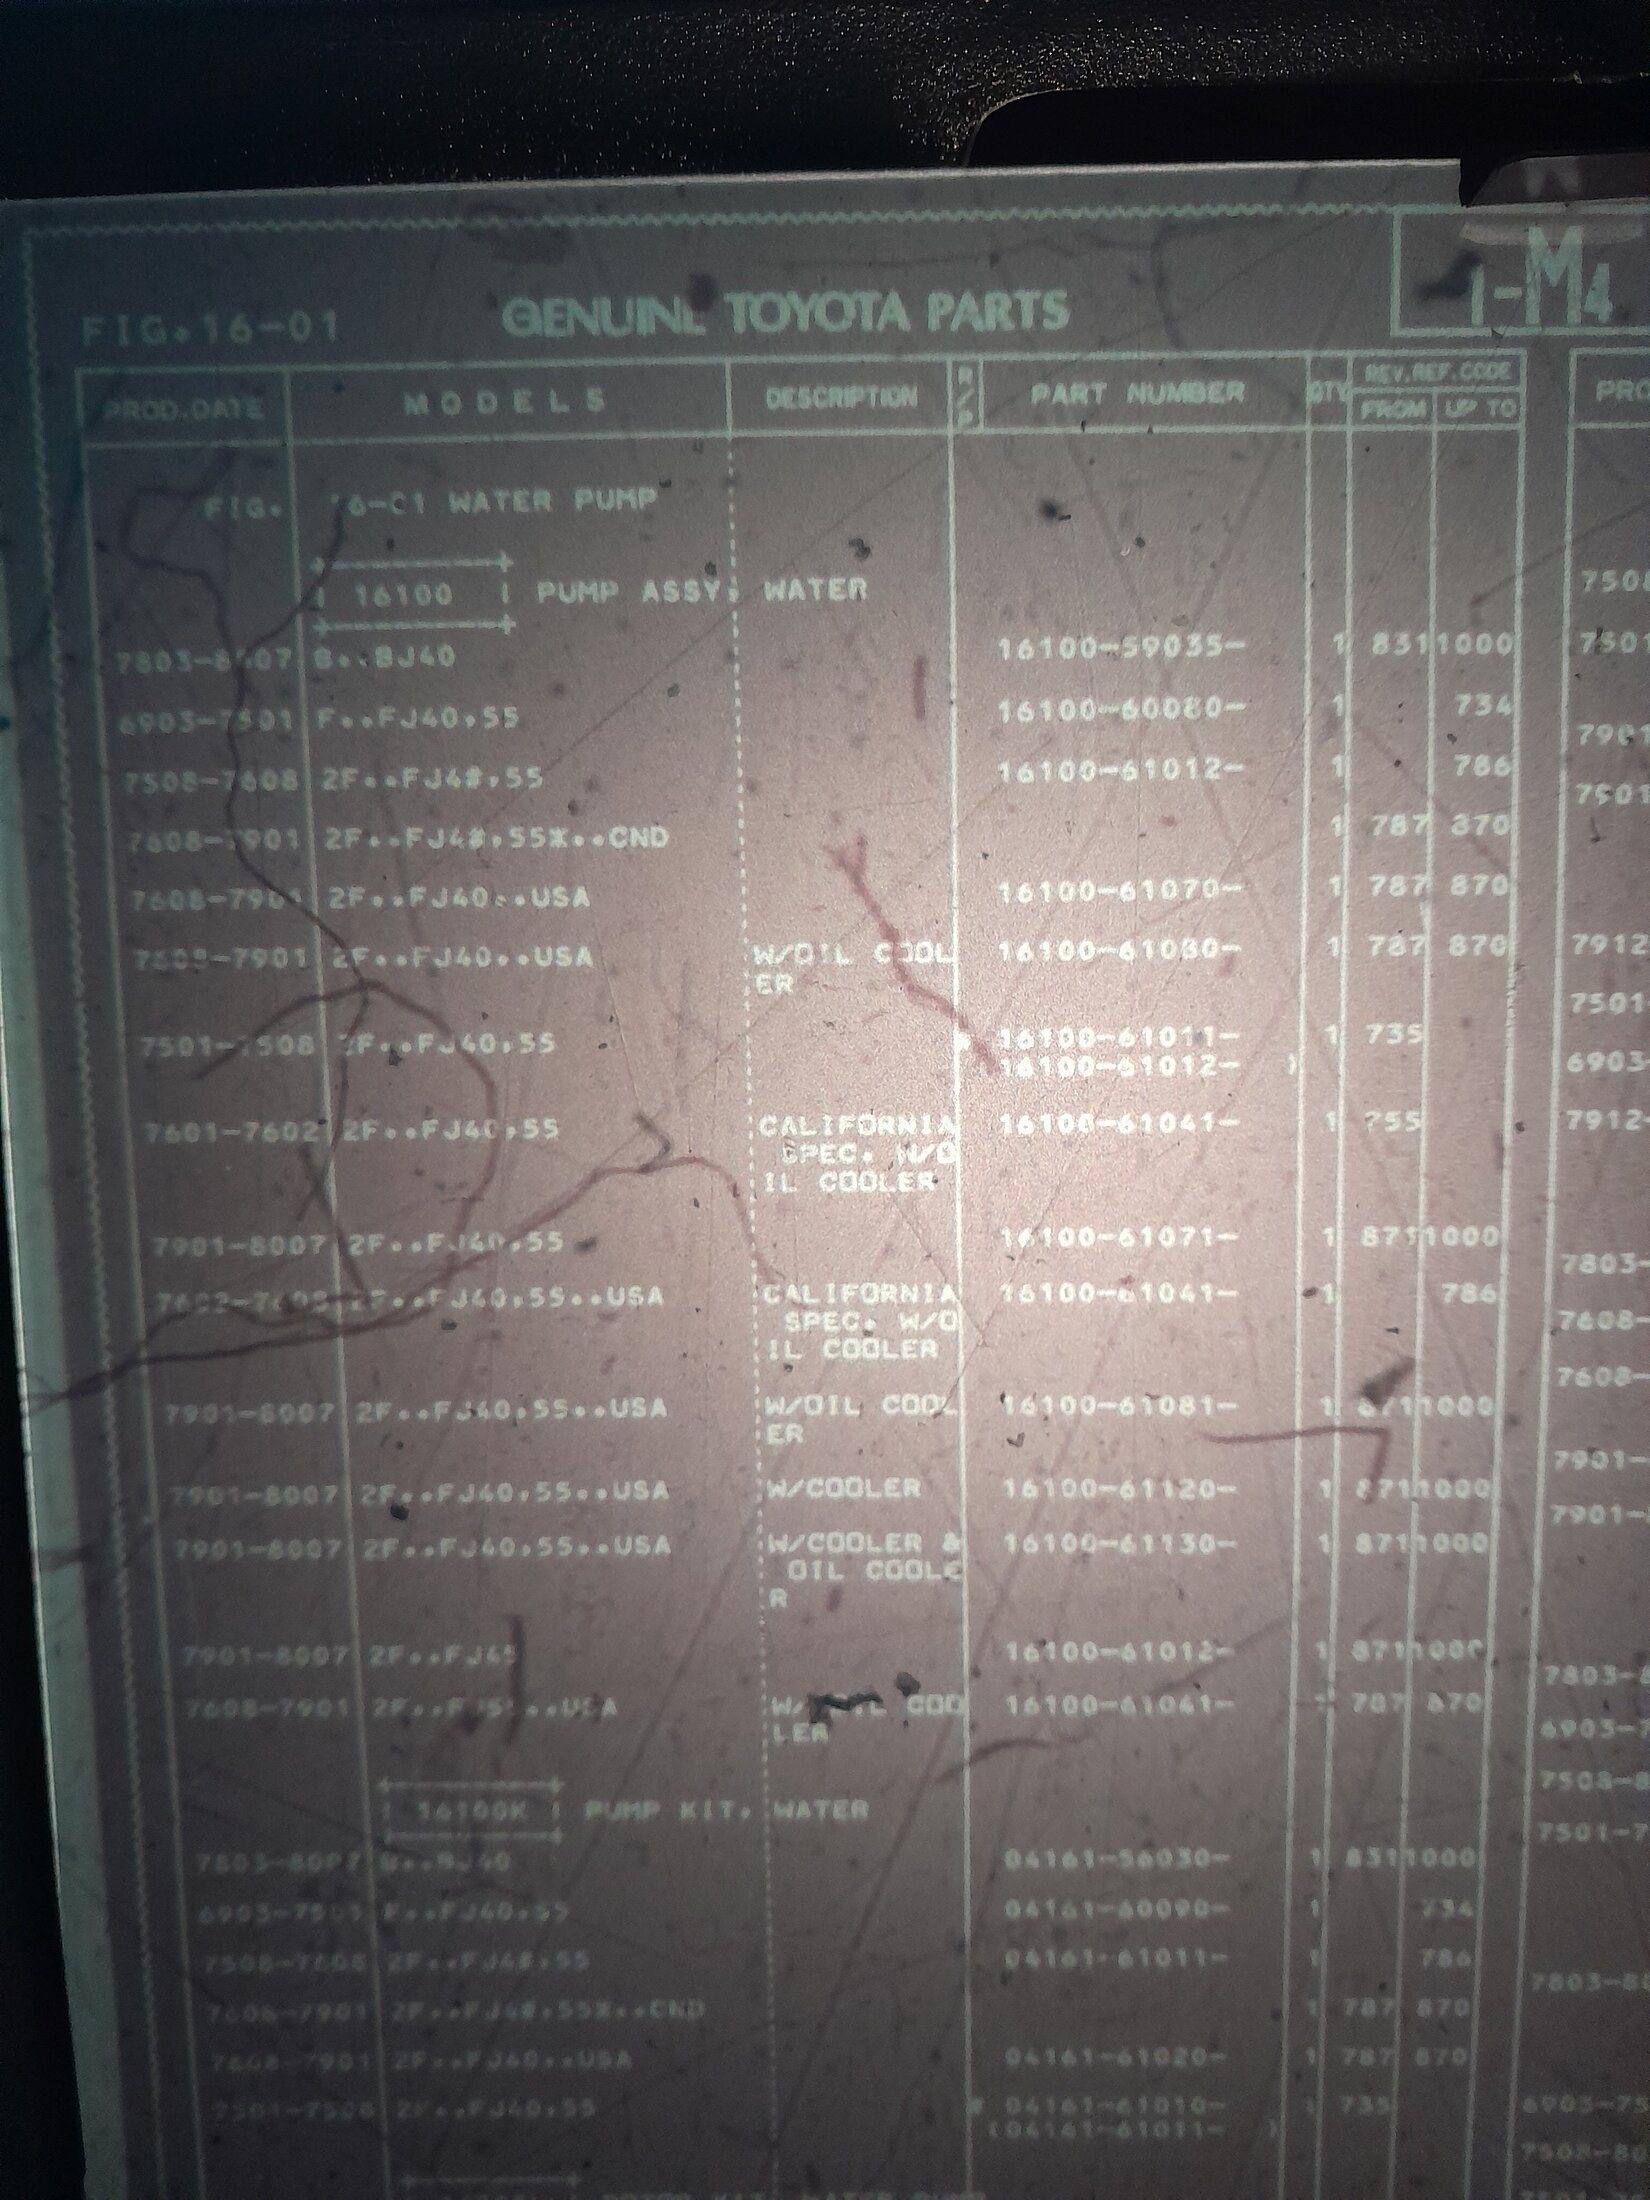 FIG.16-01 GENUINE TOYOTA PARTS 1-M4
PROD.DATE MODELS DESCRIPTION PART NUMBER QTY REV.REF.CODE
FROM UP TO
FIG. 16-01 WATER PUMP
16100 PUMP ASSY, WATER
7803-8007 B..BJ40 16100-59035- 1 831 1000
6903-7501 F..FJ40,55 16100-60080- 1 734
7508-7608 2F..FJ4#,55 16100-61012- 1 786
7608-7901 2F..FJ4#,55X..CND 1 787 870
7608-7901 2F..FJ40..USA 16100-61070- 1 787 870
7608-7901 2F..FJ40..USA W/OIL COOL 16100-61080- 1 787 870
ER
7501-7508 2F..FJ40,55 16100-61011- 1 735
16100-61012- )
7601-7602 2F..FJ40,55 CALIFORNIA 16100-61041- 1 755
SPEC. W/O
IL COOLER
7901-8007 2F..FJ40,55 16100-61071- 1 871 1000
7602-7608 2F..FJ40,55..USA CALIFORNIA 16100-61041- 1 786
SPEC. W/O
IL COOLER
7901-8007 2F..FJ40,55..USA W/OIL COOL 16100-61081- 1 871 1000
ER
7901-8007 2F..FJ40,55..USA W/COOLER 16100-61120- 1 871 1000
7901-8007 2F..FJ40,55..USA W/COOLER & 16100-61130- 1 871 1000
OIL COOLE
R
7901-8007 2F..FJ45 16100-61012- 1 871 1000
7608-7901 16100-61041- 1 787 870
LER
16100K PUMP KIT, WATER
7803-8007 B..BJ40 04161-56030- 1 831 1000
6903-7501 F..FJ40,55 04161-60090- 1 734
7508-7608 2F..FJ4#,55 04161-61011- 1 786
7608-7901 2F..FJ4#,55X..CND 1 787 870
7608-7901 2F..FJ40..USA 04161-61020- 1 787 870
7501-7508 2F..FJ40,55 04161-61010- 1 735
(04161-61011- )